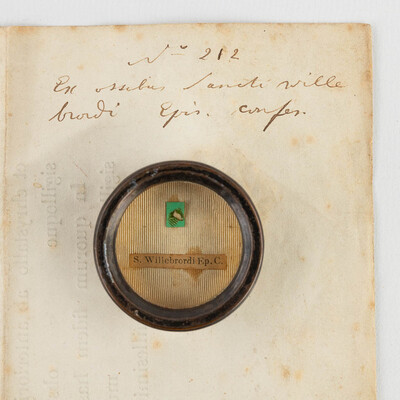 No 212
Ex ossibus Sancti Wille
brordi Epis. confes.
S. Willebrordi Ep. C.